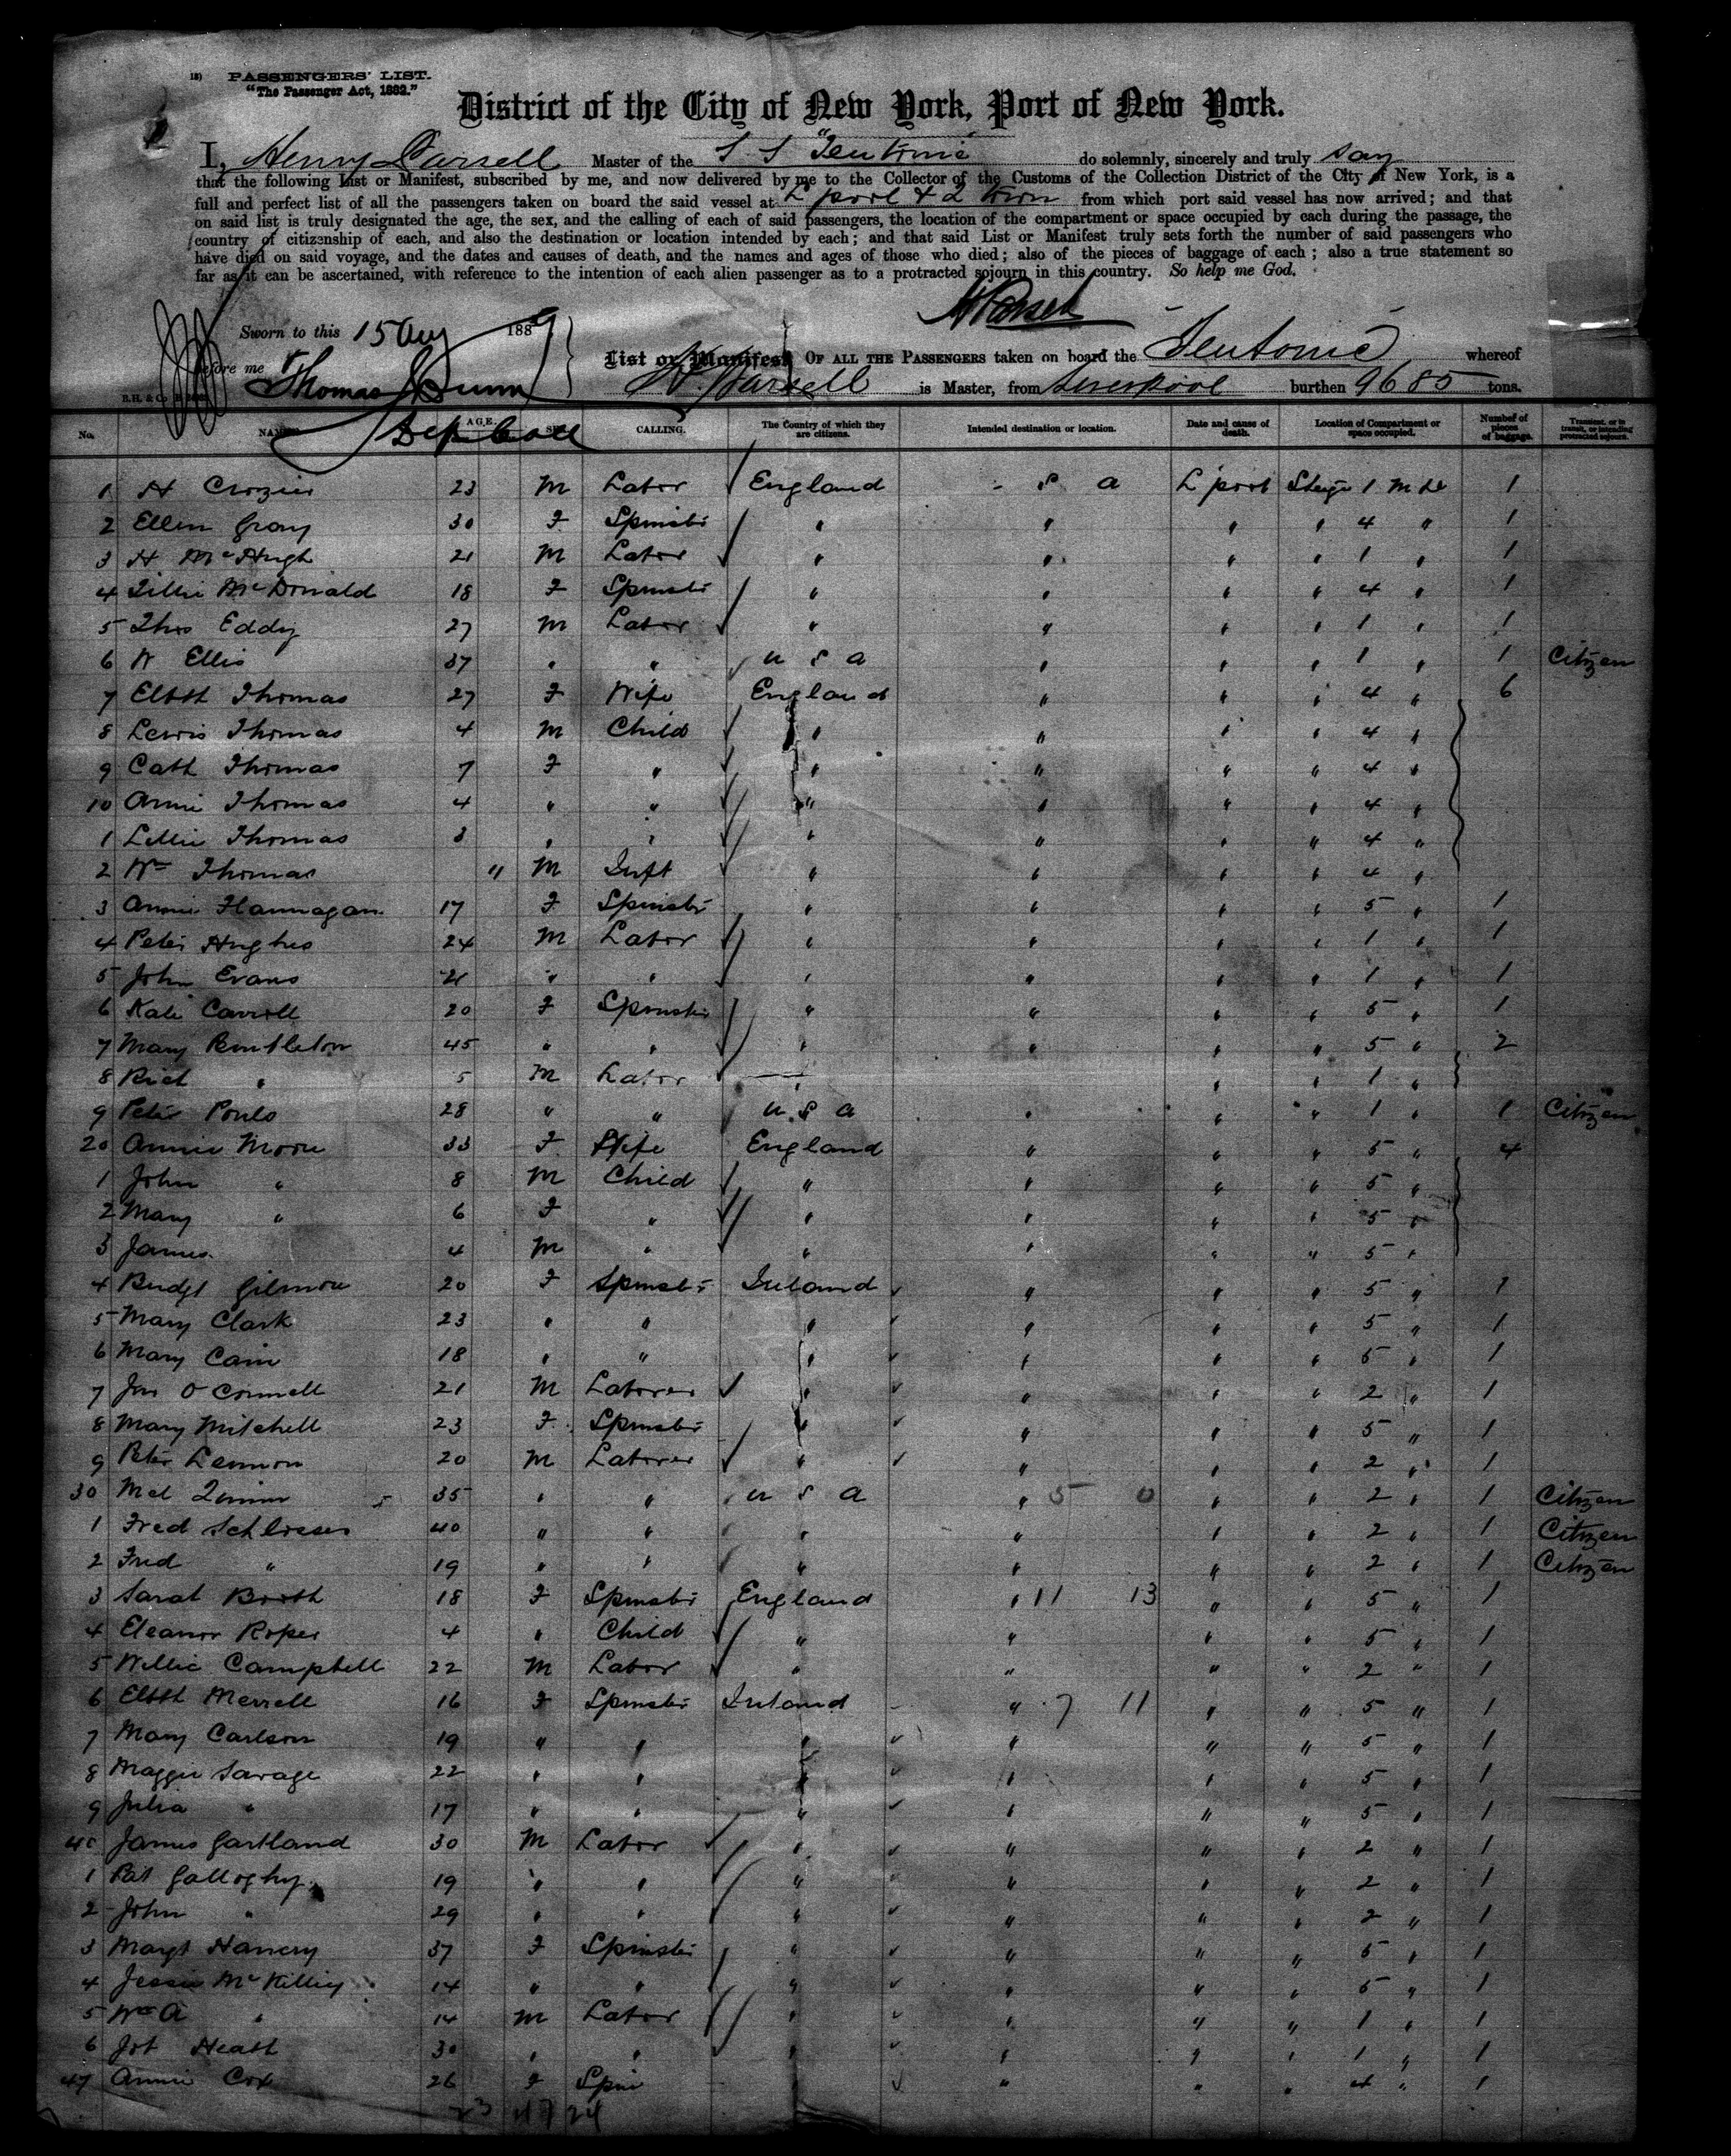 18) PASSENGERS' LIST.
"The Passenger Act, 1882."
District of the City of New York, Port of New York.
I, Henry Parsell Master of the S S "Teutonic do solemnly, sincerely and truly say
that the following List or Manifest, subscribed by me, and now delivered by me to the Collector of the Customs of the Collection District of the City of New York, is a
full and perfect list of all the passengers taken on board the said vessel at L'pool & Q'town from which port said vessel has now arrived; and that
on said list is truly designated the age, the sex, and the calling of each of said passengers, the location of the compartment or space occupied by each during the passage, the
country of citizenship of each, and also the destination or location intended by each; and that said List or Manifest truly sets forth the number of said passengers who
have died on said voyage, and the dates and causes of death, and the names and ages of those who died; also of the pieces of baggage of each; also a true statement so
far as it can be ascertained, with reference to the intention of each alien passenger as to a protracted sojourn in this country. So help me God.
H Parsell
Sworn to this 15 Aug 1889
before me Thomas J Dunn
Dep Coll
List or Manifest OF ALL THE PASSENGERS taken on board the Teutonic whereof
H Parsell is Master, from Liverpool burthen 9685 tons.
No. NAMES. AGE. SEX. CALLING. The Country of which they are citizens. Intended destination or location. Date and cause of death. Location of Compartment or space occupied. Number of pieces of baggage. Transient, or in transit, or intending protracted sojourn.
1 H Crozier 23 M Labor England S a L'pool Steige 1 M Dk 1
2 Ellen Gray 30 F Spinstr " " " " 4 " 1
3 H McHugh 21 M Labor " " " " 1 " 1
4 Lillie McDonald 18 F Spinstr " " " " 4 " 1
5 Thos Eddy 27 M Labor " " " " 1 " 1
6 W Ellis 37 " " U S A " " " 1 " 1 Citizen
7 Elbth Thomas 27 F Wife England " " " 4 " 6
8 Lewis Thomas 4 M Child " " " " 4 "
9 Cath Thomas 7 F " " " " " 4 "
10 Annie Thomas 4 " " " " " " 4 "
1 Lillie Thomas 3 " " " " " " 4 "
2 Wm Thomas " M Inft " " " " 4 "
3 Annie Flannagan 17 F Spinstr " " " " 5 " 1
4 Peter Hughes 24 M Labor " " " " 1 " 1
5 John Evans 21 " " " " " " 1 " 1
6 Kate Carroll 20 F Spinstr " " " " 5 " 1
7 Mary 45 " " " " " " 5 " 2
8 Rich " 5 M Labor " " " 1 "
9 Peter 28 " " U S A " " " 1 " 1 Citizen
20 Annie Moore 33 F Wife England " " " 5 " 4
1 John " 8 M Child " " " " 5 "
2 Mary " 6 F " " " " " 5 "
3 James 4 M " " " " " 5 "
4 Bridgt Gilmore 20 F Spinstr Ireland " " " 5 " 1
5 Mary Clark 23 " " " " " " 5 " 1
6 Mary Cain 18 " " " " " " 5 " 1
7 Jas O Connell 21 M Laborer " " " " 2 " 1
8 Mary Mitchell 23 F Spinstr " " " " 5 " 1
9 Peter Lennon 20 M Laborer " " " " 2 " 1
30 Mcl Quinn 35 " " U S A " 5 0 " " 2 " 1 Citizen
1 Fred Schlosser 40 " " " " " " 2 " 1 Citizen
2 Fred " 19 " " " " " " 2 " 1 Citizen
3 Sarah Booth 18 F Spinstr England " 11 13 " " 5 " 1
4 Eleanor Roper 4 " Child " " " " 5 " 1
5 Willie Campbell 22 M Labor " " " " 2 " 1
6 Elbth Merrell 16 F Spinstr Ireland " 7 11 " " 5 " 1
7 Mary Carlson 19 " " " " " " 5 " 1
8 Maggie Savage 22 " " " " " " 5 " 1
9 Julia " 17 " " " " " " 5 " 1
40 James Gartland 30 M Labor " " " " 2 " 1
1 Pat 19 " " " " " " 2 " 1
2 John " 29 " " " " " " 2 " 1
3 Margt 37 F Spinstr " " " " 5 " 1
4 Jessie 14 " " " " " " 5 " 1
5 Wm A " 14 M Labor " " " " 1 " 1
6 Jos Heath 30 " " " " " " 1 " 1
47 Annie Cox 26 F Spin " " " 4 " 1
23 47 24